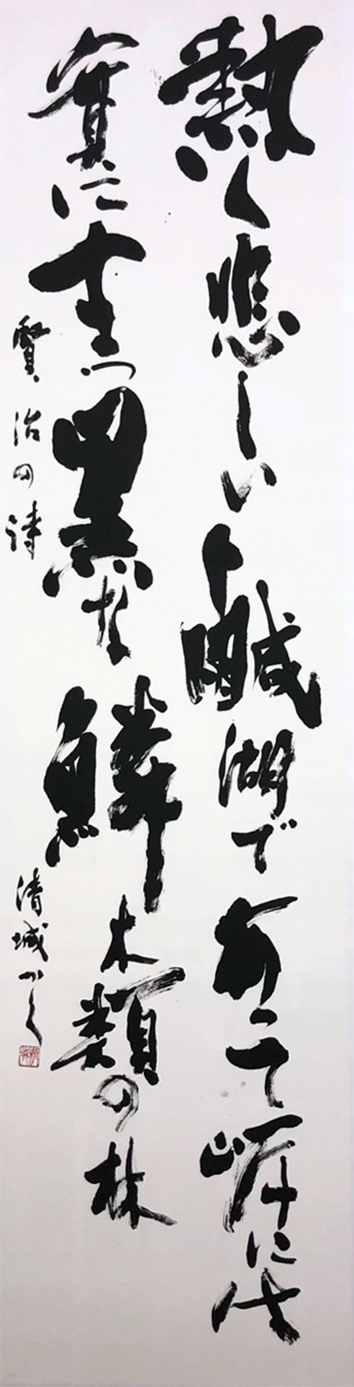 熱く悲しい鹹湖であつて岸には
實に真つ黒な鱗木類の林
賢治の詩　清城かく